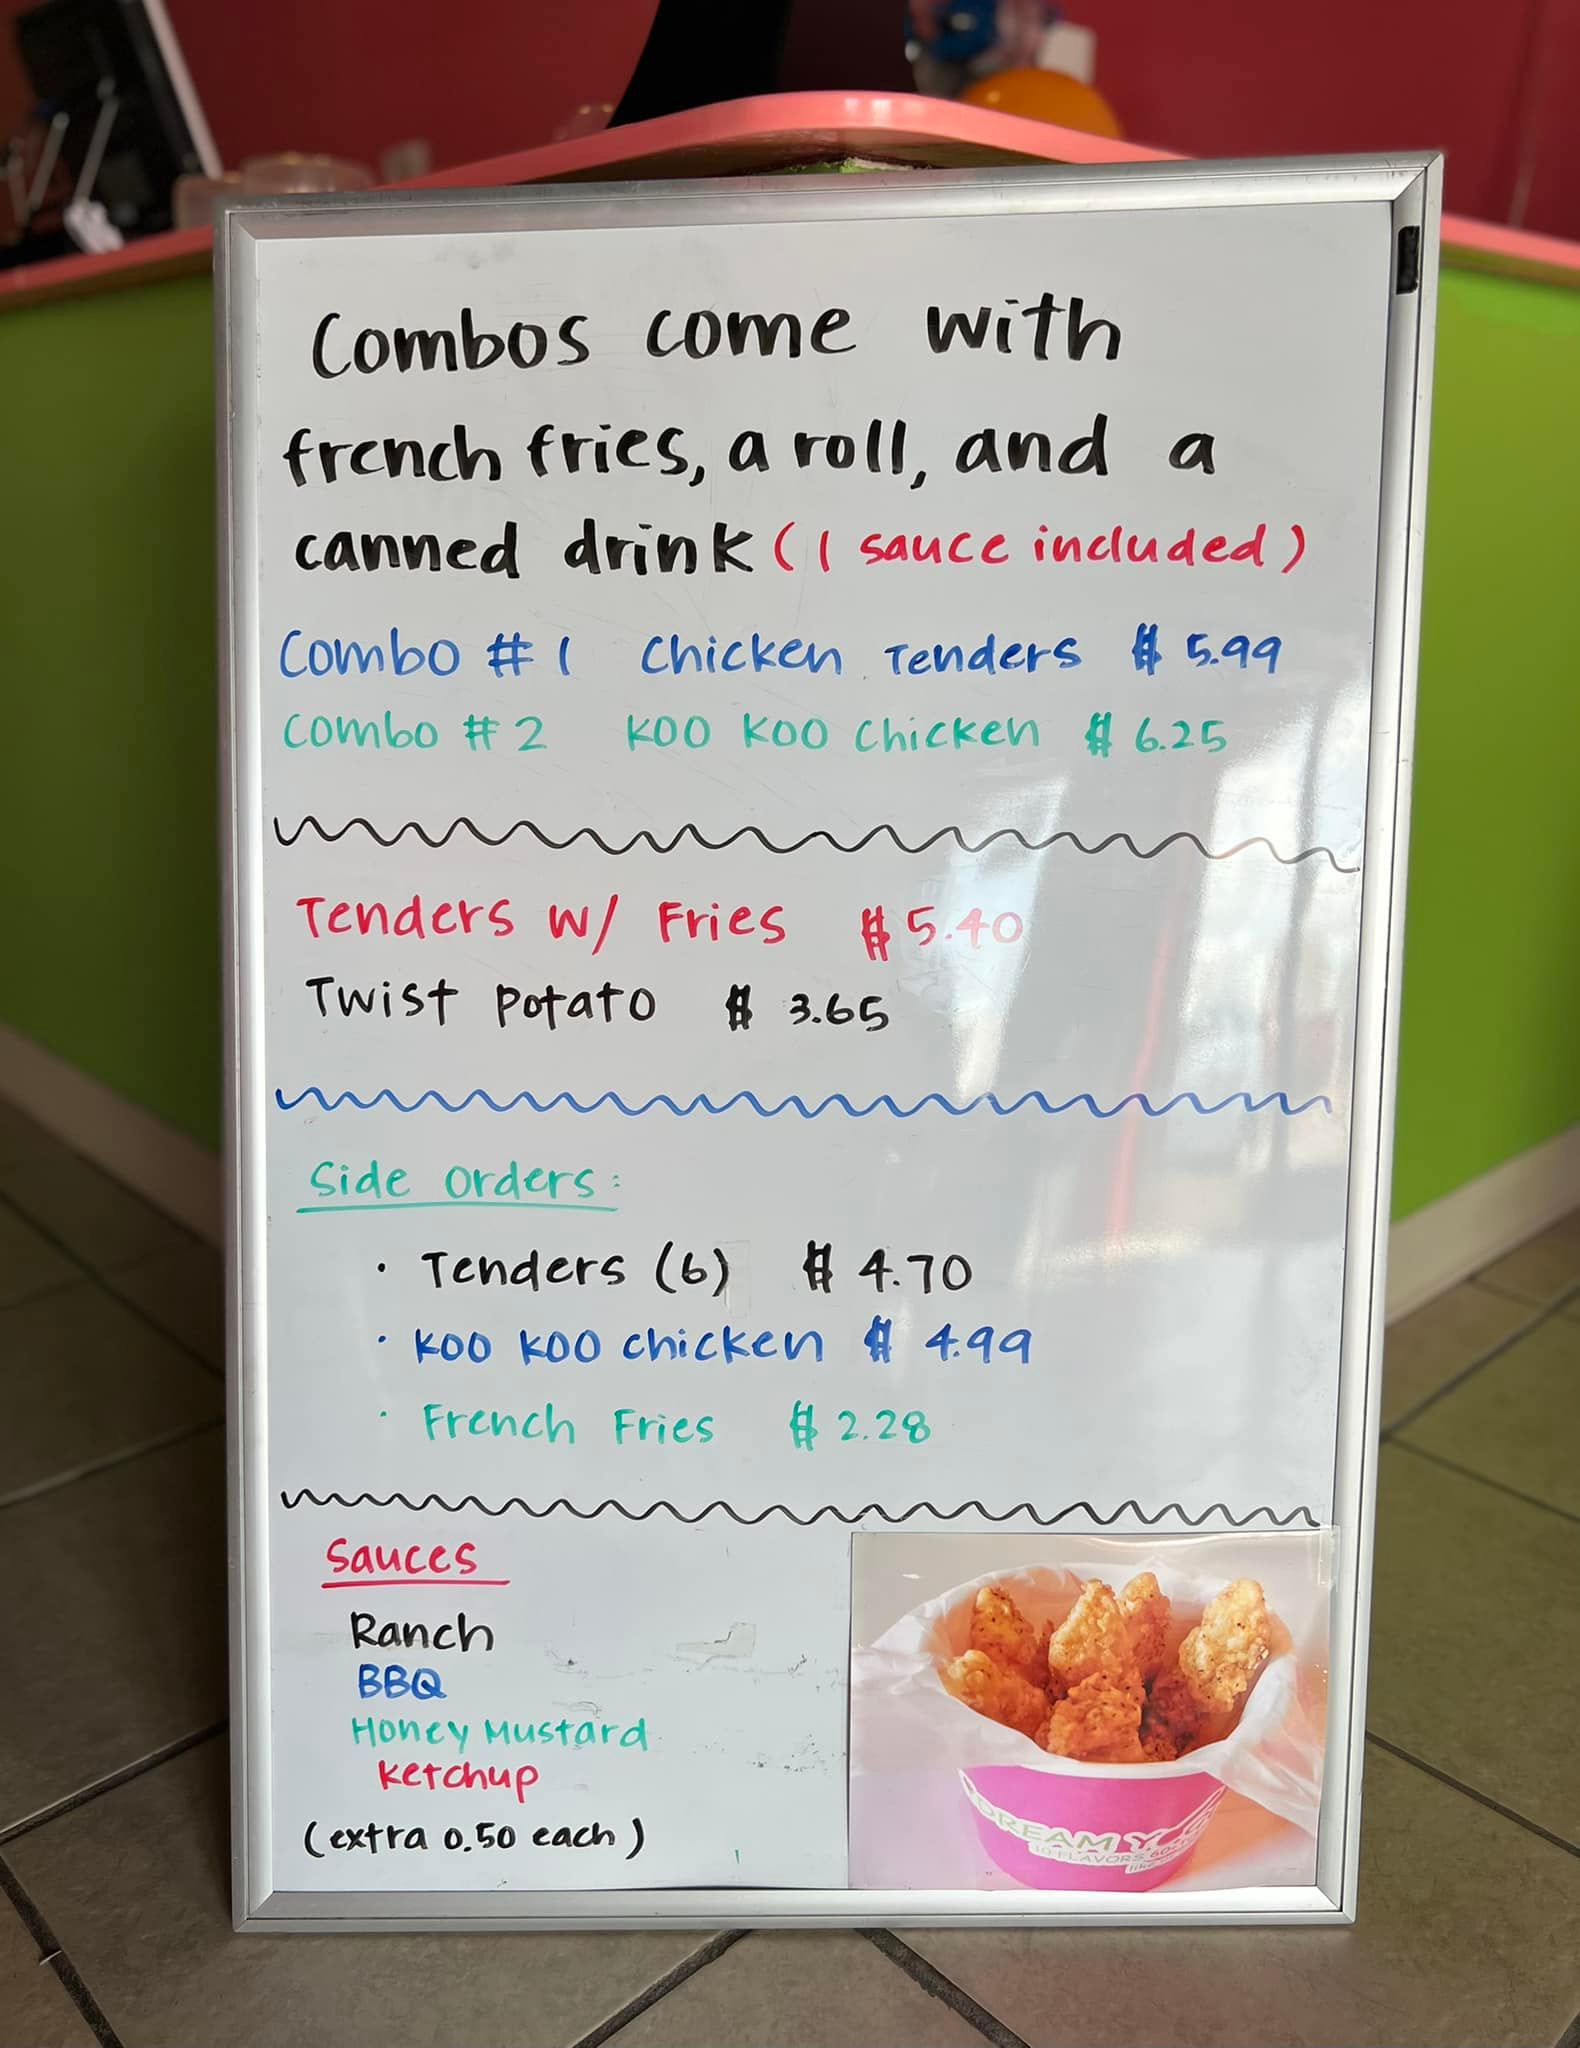 Combos come with
french fries, a roll, and a
canned drink (1 sauce included)
Combo #1 Chicken Tenders $ 5.99
Combo #2 Koo Koo Chicken $ 6.25
Tenders w/ Fries $ 5.40
Twist Potato $ 3.65
Side Orders:
· Tenders (6) $ 4.70
· Koo Koo chicken $ 4.99
· French Fries $ 2.28
Sauces
Ranch
BBQ
Honey Mustard
Ketchup
(extra 0.50 each)
DREAM
10 FLAVORS